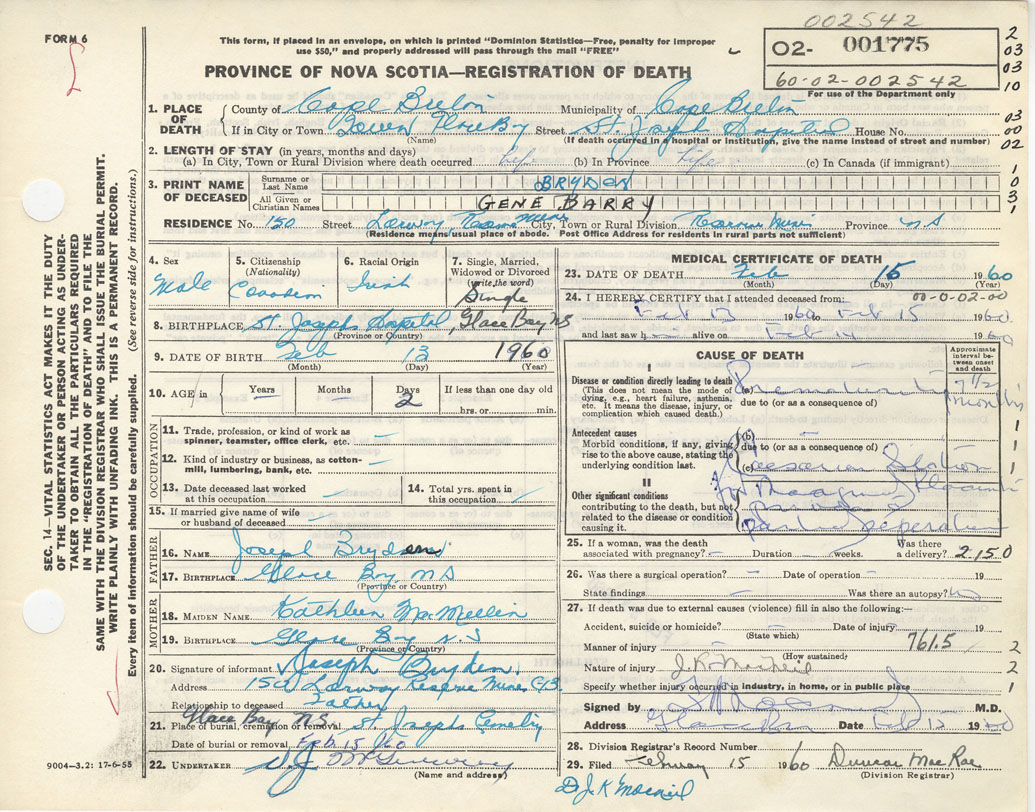 002542
FORM 6
This form, if placed in an envelope, on which is printed "Dominion Statistics—Free, penalty for improper
use $50," and properly addressed will pass through the mail "FREE"
02- 001775
60-02-002542
For use of the Department only
PROVINCE OF NOVA SCOTIA—REGISTRATION OF DEATH
2
03
03
10
03
00
02
1
0
3
1
1. PLACE OF DEATH
County of Cape Breton Municipality of Cape Breton
If in City or Town Town Glace Bay Street St. Joseph Hospital House No.
(Name) (If death occurred in a hospital or institution, give the name instead of street and number)
2. LENGTH OF STAY (in years, months and days)
(a) In City, Town or Rural Division where death occurred Life (b) In Province Life (c) In Canada (if immigrant)
3. PRINT NAME OF DECEASED
Surname or Last Name BRYDEN
All Given or Christian Names GENE BARRY
RESIDENCE No. 150 Street Lorway Reserve Mines City, Town or Rural Division Reserve Mines Province NS
(Residence means usual place of abode. Post Office Address for residents in rural parts not sufficient)
4. Sex Male
5. Citizenship (Nationality) Canadian
6. Racial Origin Irish
7. Single, Married, Widowed or Divorced (write the word) Single
8. BIRTHPLACE St. Josephs Hospital, Glace Bay NS
(Province or Country)
9. DATE OF BIRTH Feb 13 1960
(Month) (Day) (Year)
10. AGE in Years — Months — Days 2 If less than one day old hrs. or min.
OCCUPATION
11. Trade, profession, or kind of work as spinner, teamster, office clerk, etc. —
12. Kind of industry or business, as cotton-mill, lumbering, bank, etc. —
13. Date deceased last worked at this occupation —
14. Total yrs. spent in this occupation —
15. If married give name of wife or husband of deceased —
FATHER
16. NAME Joseph Bryden
17. BIRTHPLACE Glace Bay, NS
(Province or Country)
MOTHER
18. MAIDEN NAME Kathleen MacMullin
19. BIRTHPLACE Glace Bay N.S
(Province or Country)
20. Signature of informant Joseph Bryden
Address 150 Lorway Reserve Mines C/B
Relationship to deceased Father
21. Place of burial, cremation or removal Glace Bay NS St. Josephs Cemetery
Date of burial or removal Feb. 15 /60
22. UNDERTAKER
(Name and address)
MEDICAL CERTIFICATE OF DEATH
23. DATE OF DEATH Feb 15 1960
(Month) (Day) (Year)
24. I HEREBY CERTIFY that I attended deceased from: 00-0-02-00
Feb 13 1960 Feb 15 1960
and last saw h alive on Feb 14 1960
CAUSE OF DEATH
Approximate interval between onset and death
I
Disease or condition directly leading to death (a) Prematurity 7 1/2 months
(This does not mean the mode of dying, e.g., heart failure, asthenia, etc. It means the disease, injury, or complication which caused death.)
due to (or as a consequence of)
Antecedent causes (b) —
Morbid conditions, if any, giving rise to the above cause, stating the underlying condition last.
due to (or as a consequence of)
(c) Caesarian Section
II
Other significant conditions contributing to the death, but not related to the disease or condition causing it.
1
1
1
1
25. If a woman, was the death associated with pregnancy? — Duration weeks. Was there a delivery? 2150
26. Was there a surgical operation? — Date of operation — 19
State findings Was there an autopsy? no
27. If death was due to external causes (violence) fill in also the following:—
Accident, suicide or homicide? Date of injury 19
(State which)
Manner of injury 761.5 2
(How sustained)
Nature of injury J.K. MacNeil 2
Specify whether injury occurred in industry, in home, or in public place 1
Signed by M.D.
Address Date Feb 1960
28. Division Registrar's Record Number
29. Filed February 15 1960 Duncan MacRae
(Division Registrar)
D.J.K MacNeil
SEC. 14—VITAL STATISTICS ACT MAKES IT THE DUTY
OF THE UNDERTAKER OR PERSON ACTING AS UNDER-
TAKER TO OBTAIN ALL THE PARTICULARS REQUIRED
IN THE "REGISTRATION OF DEATH" AND TO FILE THE
SAME WITH THE DIVISION REGISTRAR WHO SHALL ISSUE THE BURIAL PERMIT.
WRITE PLAINLY WITH UNFADING INK. THIS IS A PERMANENT RECORD.
Every item of information should be carefully supplied. (See reverse side for instructions.)
9004—3.2: 17-6-55